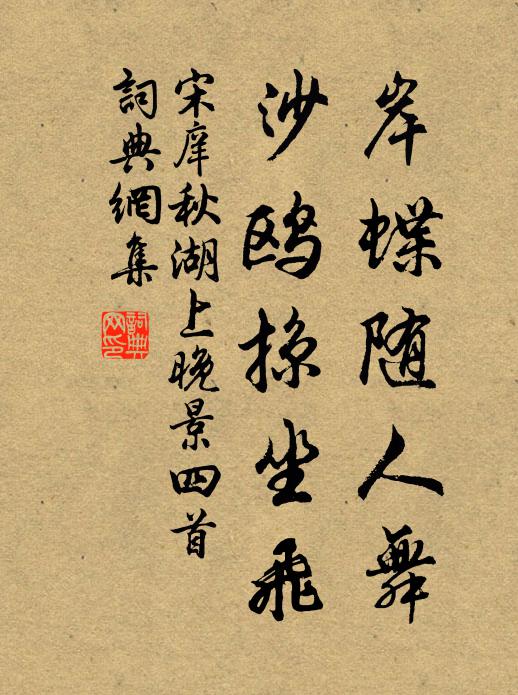 岸蝶随人舞
沙鸥掠坐飛
宋庠秋湖上晚景四首
詞典網集
詞典网印